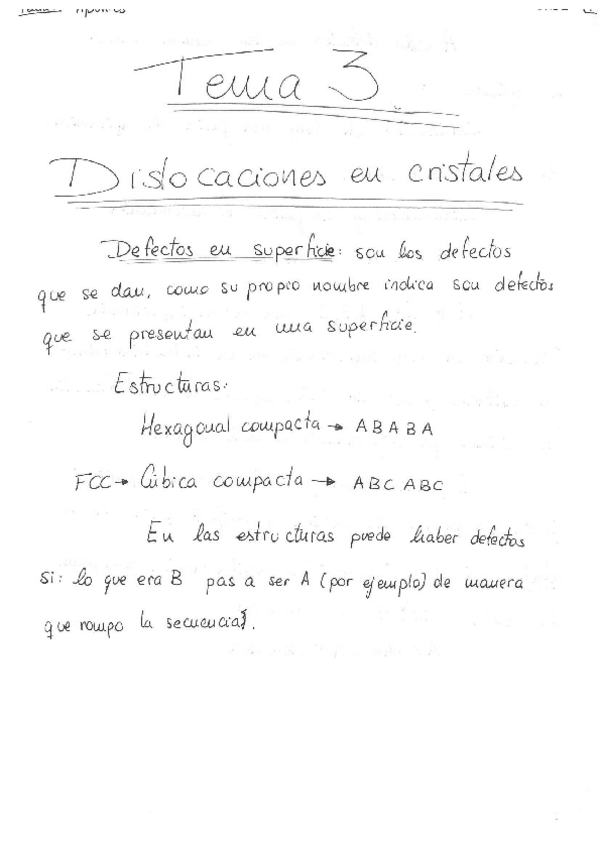 Tema 3
Dislocaciones en cristales
Defectos en superficie: son los defectos
que se dan, como su propio nombre indica son defectos
que se presentan en una superficie.
Estructuras:
Hexagonal compacta → A B A B A
FCC → Cúbica compacta → A B C A B C
En las estructuras puede haber defectos
si: lo que era B pas a ser A (por ejemplo) de manera
que rompo la secuencia.